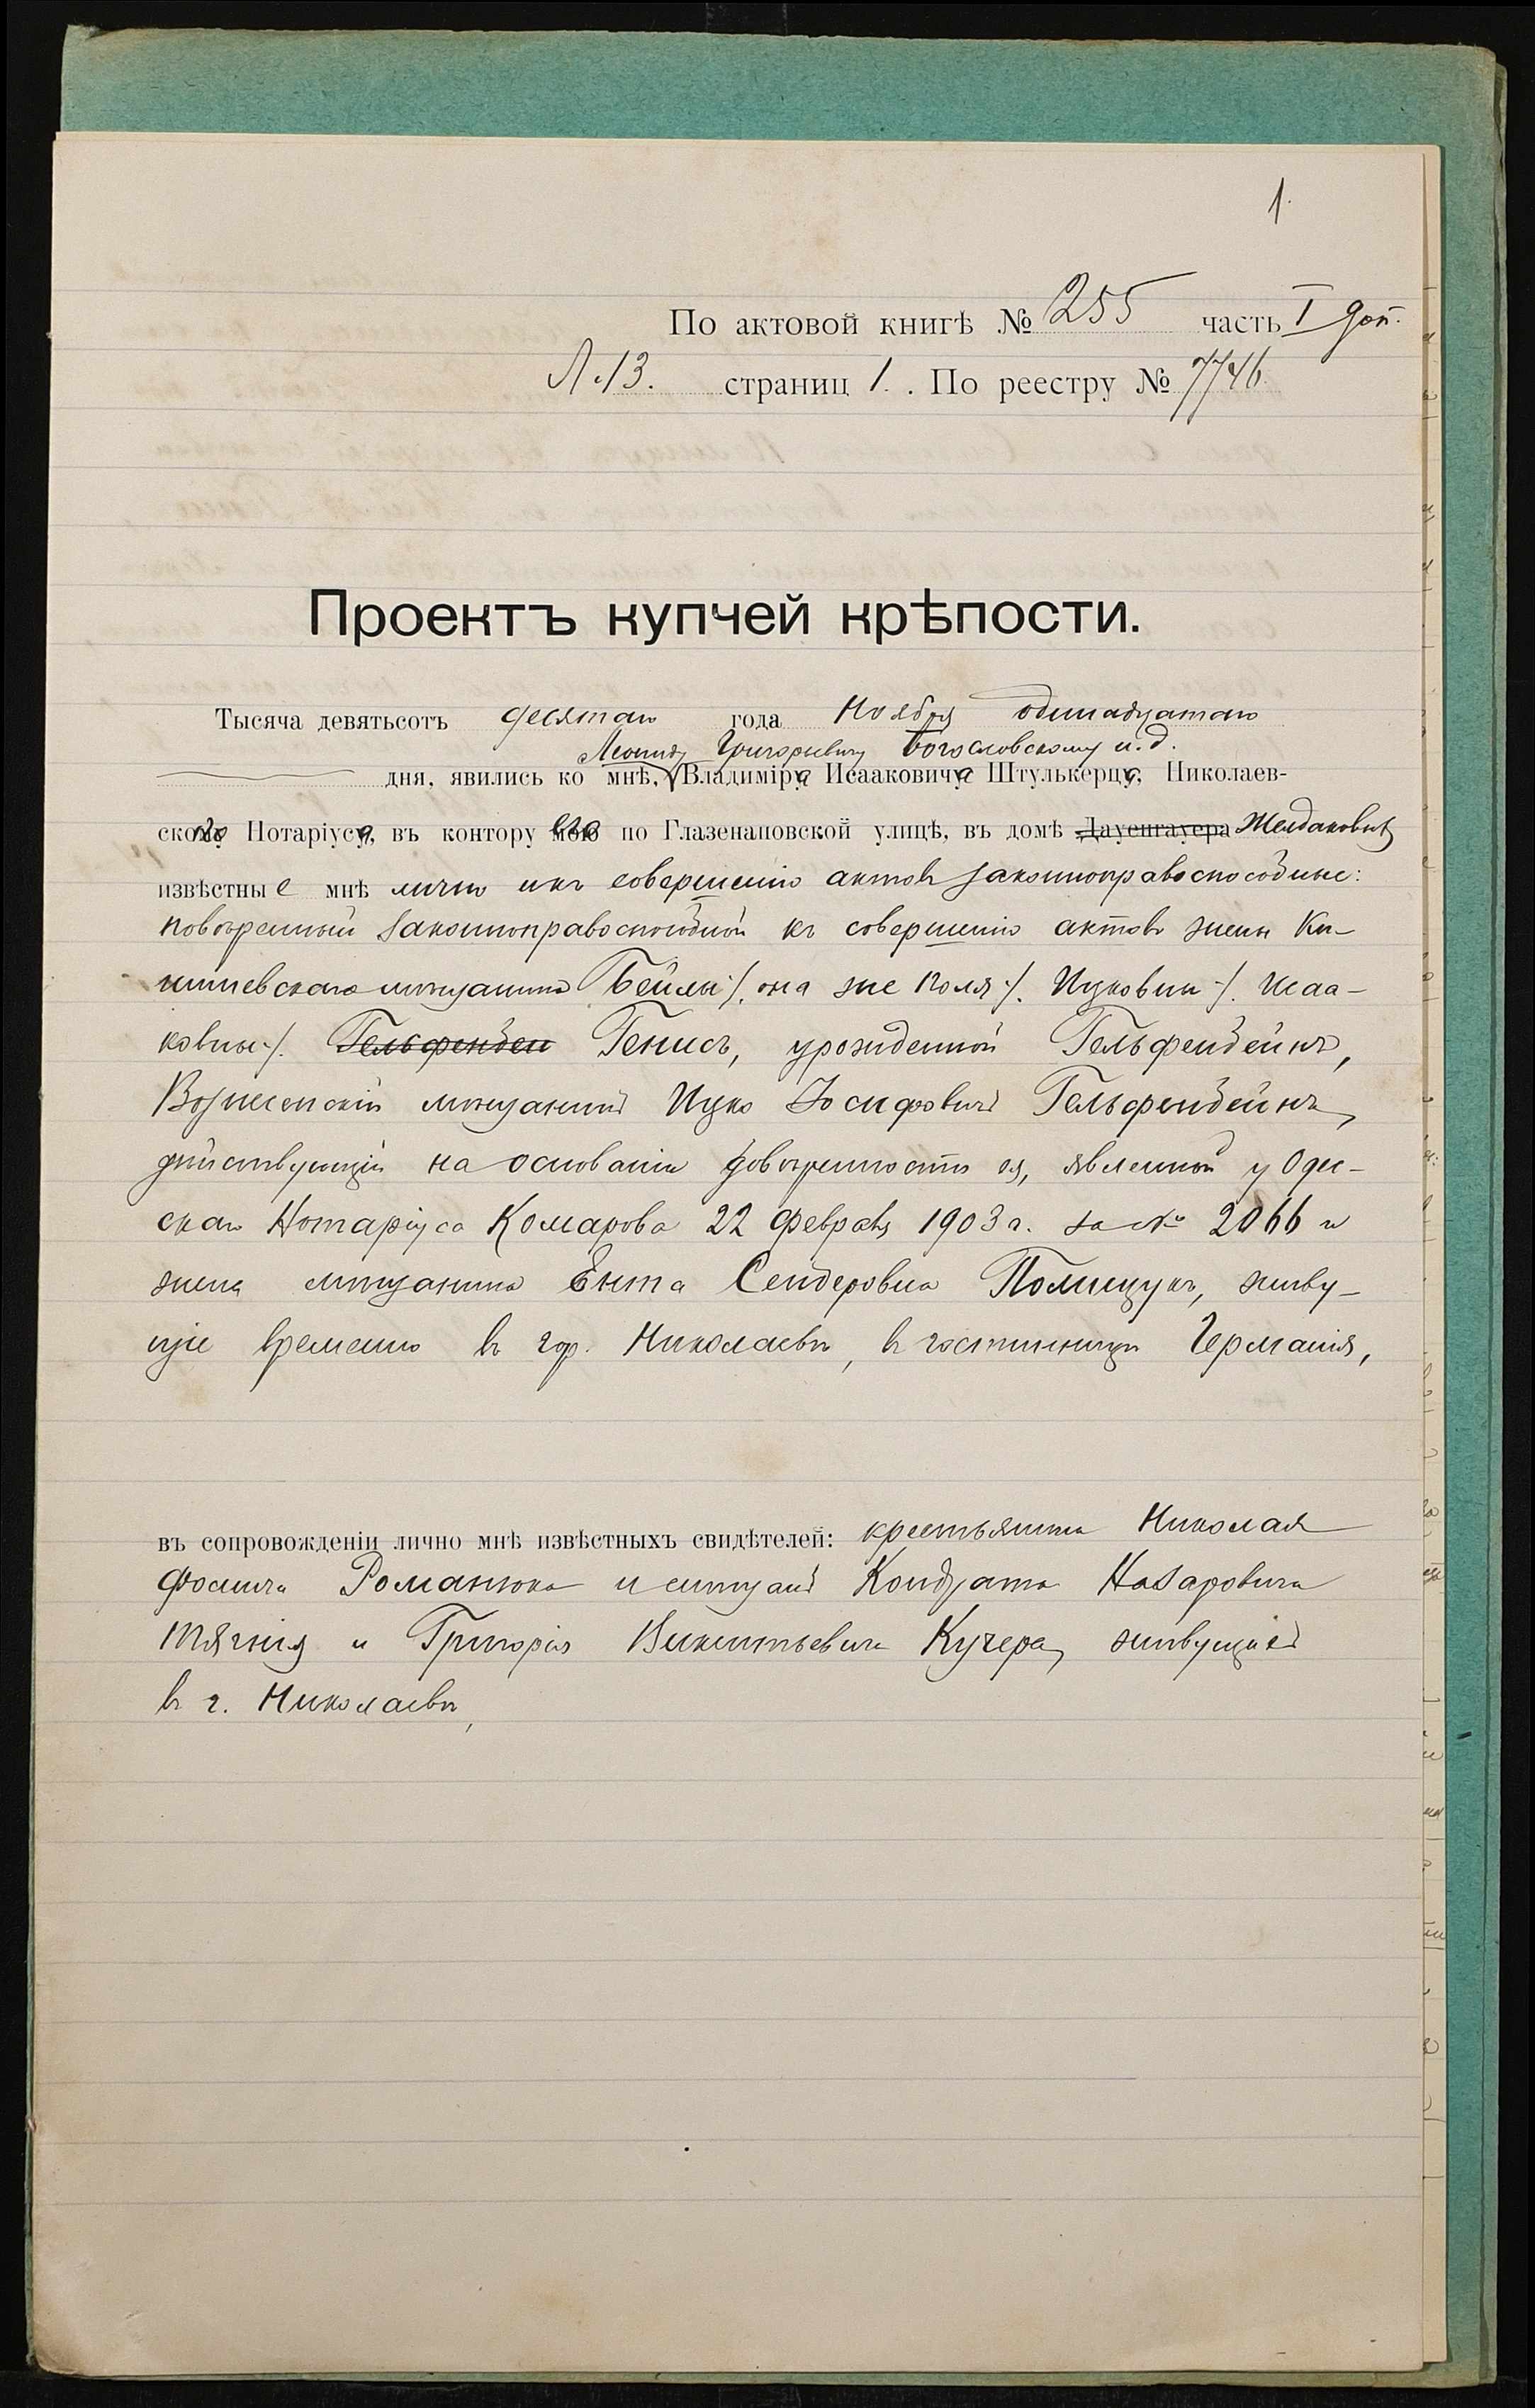 1.
По актовой книгѣ № 255 часть I доп.
Л. 13. страниц 1. По реестру № 7746.
Проектъ купчей крѣпости.
Тысяча девятьсотъ десятаго года Ноября одинадцатаго
Леониду Григорьевичу Богословскому и. д.
дня, явились ко мнѣ, Владиміра Исааковича Штулькерца, Николаев-
скаго Нотаріуса, въ контору его по Глазенаповской улицѣ, въ домѣ Дауенгауера Желдаковыхъ
извѣстные мнѣ лично и къ совершенію актовъ законноправоспособные:
повѣренный законноправоспособной къ совершенію актовъ жены Ки-
шиневскаго мѣщанина Бейлы /. она же Поля /. Ицковны /. Исаа-
ковны /. Гельфенбен Генисъ, урожденной Гельфенбейнъ,
Вознесенскій мѣщанинъ Ицко Іосифовичъ Гельфенбейнъ,
дѣйствующій на основаніи довѣренности ея, явленной у Одес-
скаго Нотаріуса Комарова 22 Февраля 1903 г. за № 2066 и
жена мѣщанина Ента Сендеровна Полищукъ, живу-
щіе временно въ гор. Николаевѣ, въ гостинницѣ Германія,
въ сопровожденіи лично мнѣ извѣстныхъ свидѣтелей: крестьянина Николая
Фомича Романюка и мѣщанъ Кондрата Назаровича
Тягния и Григорія Викентьевича Кучера, живущихъ
въ г. Николаевѣ,